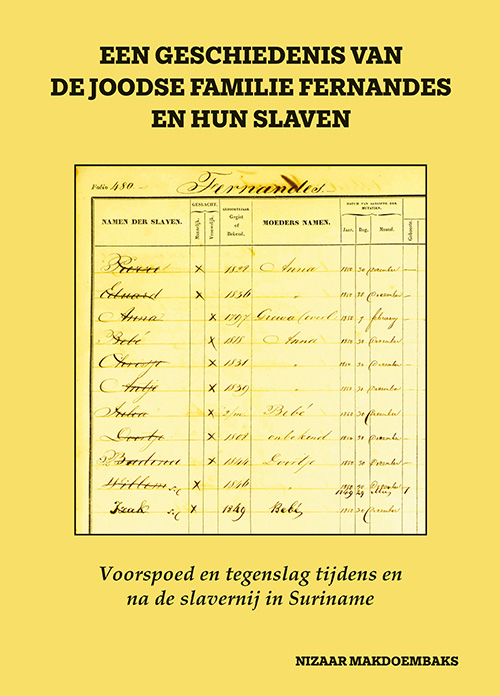 EEN GESCHIEDENIS VAN
DE JOODSE FAMILIE FERNANDES
EN HUN SLAVEN
Folio 480. Fernandes.
NAMEN DER SLAVEN. GESLACHT. Mannelijk. Vrouwelijk. GEBOORTEJAAR Gegist of Bekend. MOEDERS NAMEN. Jaar. Dag. Maand.
Pierro x 1829 Anna 1850 30 December
Eduard x 1836 " 1850 30 December
Anna x 1797 February
Bebé x 1818 Anna 1850 30 December
Christje x 1831 " 1850 30 December
Antje x 1839 " 1850 30 December
x Bebé 1850 30 December
Doortje x 1808 onbekend 1850 30 December
x 1844 Doortje 1850 30 December
Willem x 1846
x 1849 Bebé 1850 30 December
Voorspoed en tegenslag tijdens en
na de slavernij in Suriname
NIZAAR MAKDOEMBAKS